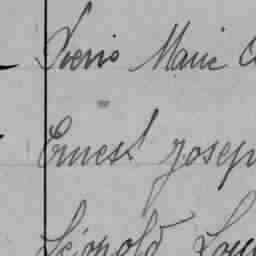 Marie
Ernest Josep
Léopold Lou